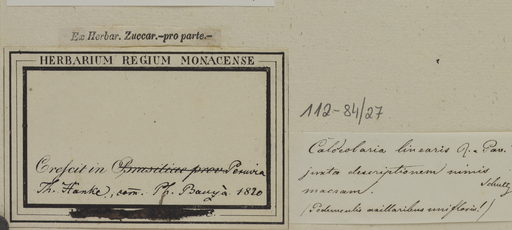 Ex Herbar. Zuccar.-pro parte.-
HERBARIUM REGIUM MONACENSE
Crescit in Brasiliae prov. Peruvia
Th. Hanke, com. Ph. Bauzà 1820
112-84/27
Calceolaria linearis R. & Pav.
juxta descriptionem nimis
macram. Schultz
(Pedunculis axillaribus unifloris!)